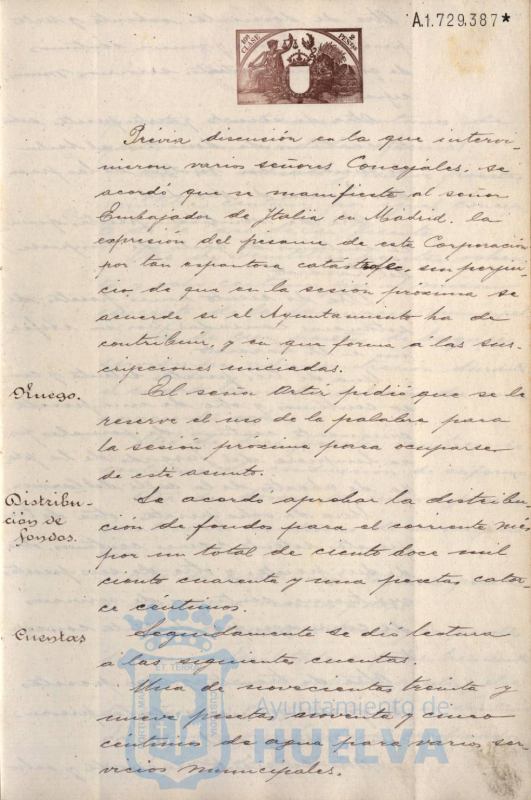 A.1.729,387*
10ª CLASE 2 PESETAS
Prévia discusión en la que intervi-
nieron varios señores Concejales, se
acordó que se manifieste al señor
Embajador de Italia en Madrid, la
expresión del pésame de esta Corporación
por tan espantosa catástrofe, sin perjui-
cio, de que en la sesión próxima se
acuerde si el Ayuntamiento ha de
contribuir, y en que forma á las sus-
cripciones iniciadas.
Ruego.
El señor Ortiz pidió que se le
reserve el uso de la palabra para
la sesión próxima para ocuparse
de este asunto.
Distribu-
ción de
fondos.
Se acordó aprobar la distribu-
ción de fondos para el corriente mes
por un total de ciento doce mil
ciento cuarenta y una pesetas cator-
ce céntimos.
Cuentas
Seguidamente se dió lectura
á las siguientes cuentas.
Una de novecientas treinta y
nueve pesetas noventa y cinco
céntimos de agua para varios ser-
vicios municipales.
Ayuntamiento de
HUELVA